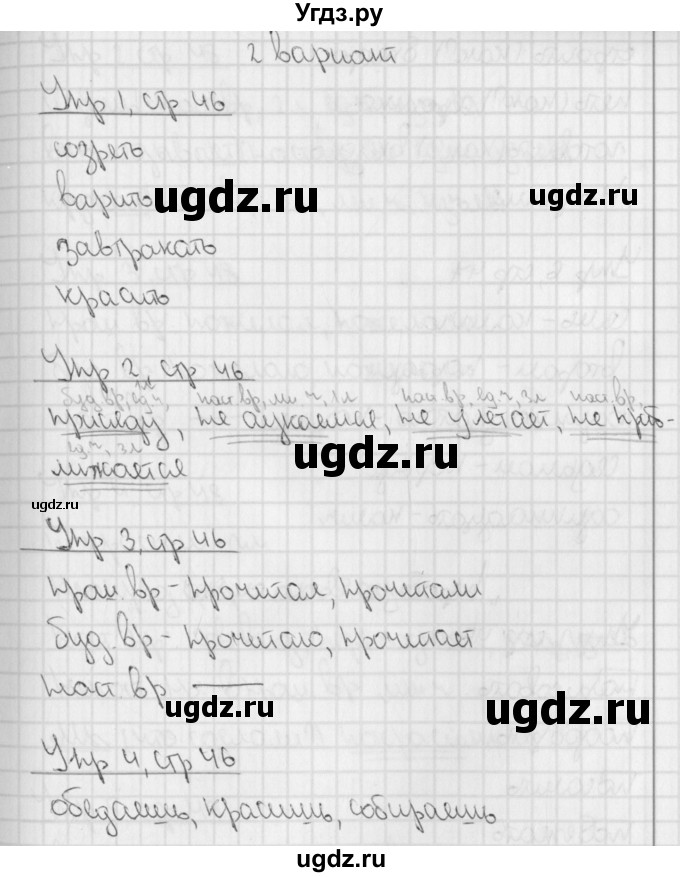 Угдз.ру
2 вариант
Упр 1, стр 46
созреть
варить
ugdz.ru
ugdz.ru
завтракать
красить
Упр 2, стр 46
буд. вр, ед. ч, 1л наст вр, мн ч, 1л наст вр, ед ч, 3л наст. вр,
присяду, не аукаемся, не улетает, не приб-
ед. ч, 3л
лижается
ugdz.ru
ugdz.ru
Упр 3, стр 46
прош. вр - прочитал, прочитали
буд. вр - прочитаю, прочитает
наст. вр
ugdz.ru
ugdz.ru
Упр 4, стр 46
ugdz.ru
обедаешь, красишь, собираешь
ugdz.ru